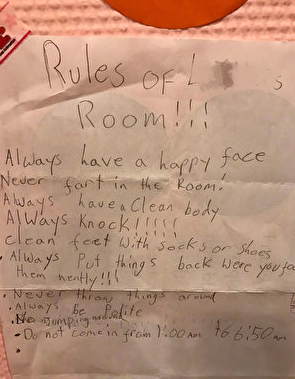 Rules of L s
Room!!!
• Always have a happy face
Never fart in the Room!
Always have a Clean body
Always Knock!!!!!
clean feet with socks or shoes
• Always Put things back were you
them neatly!!!
• Never throw things around
• Always be Polite
• No jumping
- Do not come in from 1:00 Am to 6:50 am
•